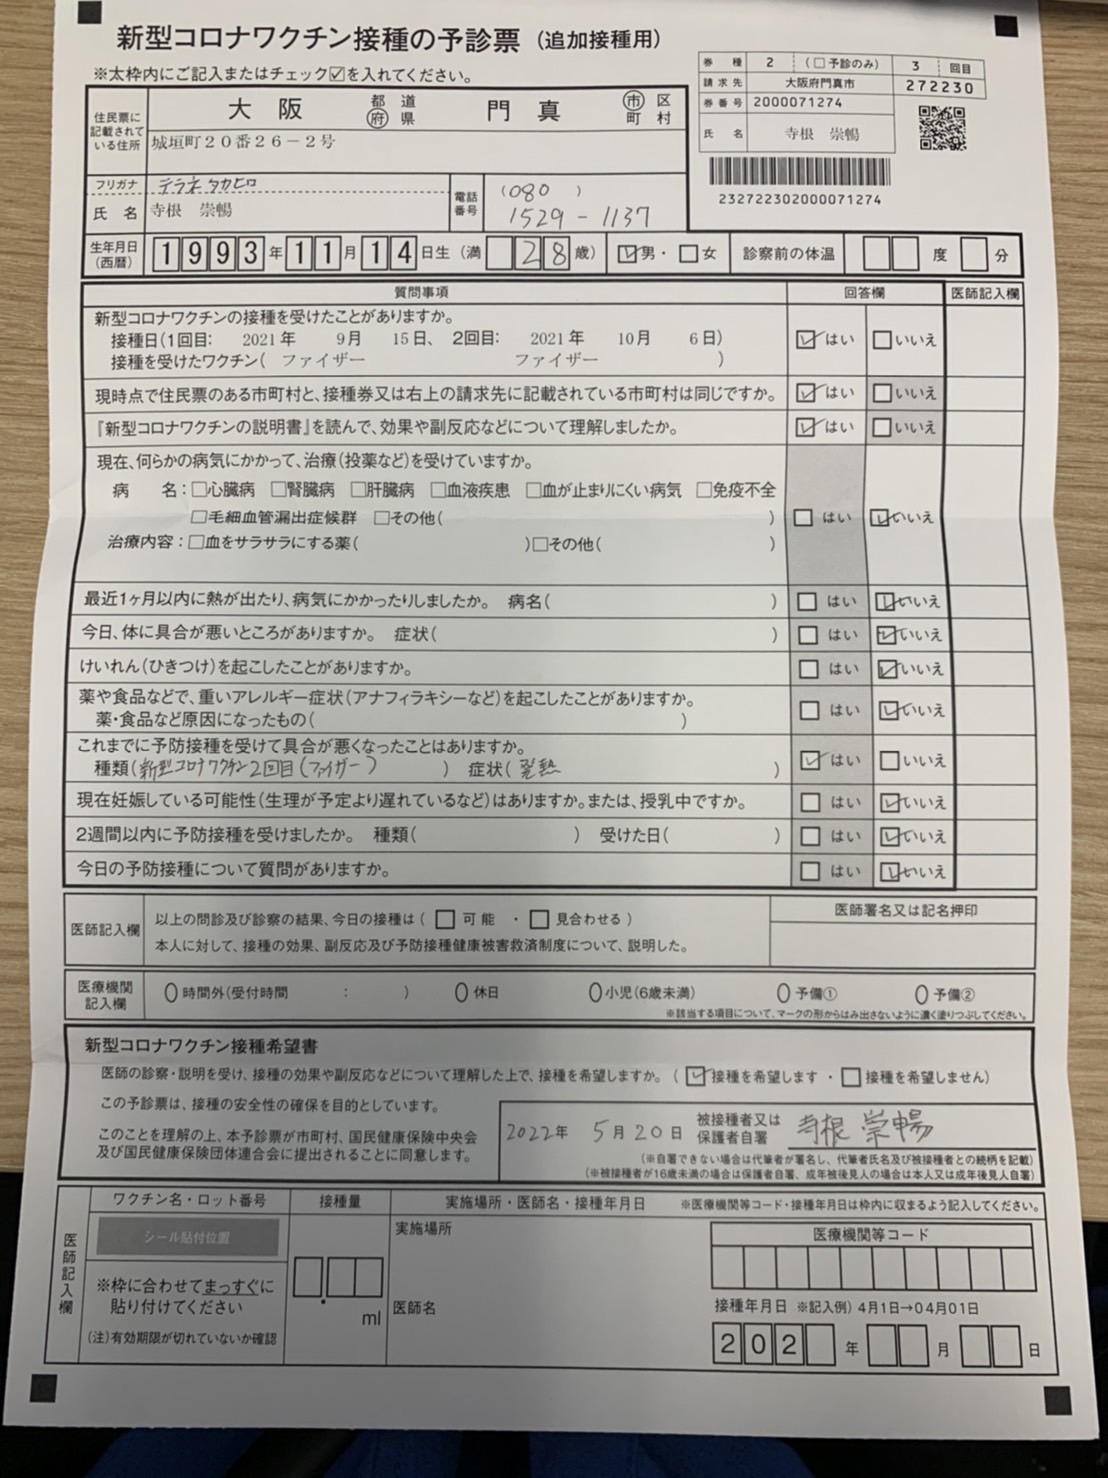 新型コロナワクチン接種の予診票（追加接種用）
※太枠内にご記入またはチェック☑を入れてください。
券種 2 （□予診のみ） 3 回目
請求先 大阪府門真市 272230
券番号 2000071274
氏名 寺根 崇暢
232722302000071274
住民票に記載されている住所 大阪 都道府県 門真 市区町村
城垣町20番26－2号
フリガナ テラネ タカヒロ
氏名 寺根 崇暢
電話番号 (080) 1529-1137
生年月日(西暦) 1993年11月14日生（満28歳） ☑男・□女 診察前の体温 度 分
質問事項 回答欄 医師記入欄
新型コロナワクチンの接種を受けたことがありますか。
接種日(1回目: 2021年 9月 15日、 2回目: 2021年 10月 6日) ☑はい □いいえ
接種を受けたワクチン( ファイザー ファイザー )
現時点で住民票のある市町村と、接種券又は右上の請求先に記載されている市町村は同じですか。 ☑はい □いいえ
『新型コロナワクチンの説明書』を読んで、効果や副反応などについて理解しましたか。 ☑はい □いいえ
現在、何らかの病気にかかって、治療(投薬など)を受けていますか。
病名：□心臓病 □腎臓病 □肝臓病 □血液疾患 □血が止まりにくい病気 □免疫不全
□毛細血管漏出症候群 □その他( ) □はい ☑いいえ
治療内容：□血をサラサラにする薬( )□その他( )
最近1ヶ月以内に熱が出たり、病気にかかったりしましたか。 病名( ) □はい ☑いいえ
今日、体に具合が悪いところがありますか。 症状( ) □はい ☑いいえ
けいれん(ひきつけ)を起こしたことがありますか。 □はい ☑いいえ
薬や食品などで、重いアレルギー症状(アナフィラキシーなど)を起こしたことがありますか。
薬・食品など原因になったもの( ) □はい ☑いいえ
これまでに予防接種を受けて具合が悪くなったことはありますか。
種類(新型コロナワクチン2回目(ファイザー) ) 症状(発熱 ) ☑はい □いいえ
現在妊娠している可能性(生理が予定より遅れているなど)はありますか。または、授乳中ですか。 □はい ☑いいえ
2週間以内に予防接種を受けましたか。 種類( ) 受けた日( ) □はい ☑いいえ
今日の予防接種について質問がありますか。 □はい ☑いいえ
医師記入欄 以上の問診及び診察の結果、今日の接種は（ □可能 ・ □見合わせる ） 医師署名又は記名押印
本人に対して、接種の効果、副反応及び予防接種健康被害救済制度について、説明した。
医療機関記入欄 時間外(受付時間 : ) 休日 小児(6歳未満) 予備① 予備②
※該当する項目について、マークの形からはみ出さないように濃く塗りつぶしてください。
新型コロナワクチン接種希望書
医師の診察・説明を受け、接種の効果や副反応などについて理解した上で、接種を希望しますか。（ ☑接種を希望します ・ □接種を希望しません）
この予診票は、接種の安全性の確保を目的としています。
このことを理解の上、本予診票が市町村、国民健康保険中央会
及び国民健康保険団体連合会に提出されることに同意します。
2022年 5月20日 被接種者又は保護者自署 寺根 崇暢
(※自署できない場合は代筆者が署名し、代筆者氏名及び被接種者との続柄を記載)
(※被接種者が16歳未満の場合は保護者自署、成年被後見人の場合は本人又は成年後見人自署)
医師記入欄 ワクチン名・ロット番号 接種量 実施場所・医師名・接種年月日 ※医療機関等コード・接種年月日は枠内に収まるよう記入してください。
シール貼付位置 実施場所 医療機関等コード
※枠に合わせてまっすぐに
貼り付けてください
ml 医師名 接種年月日 ※記入例) 4月1日→04月01日
(注)有効期限が切れていないか確認
202 年 月 日